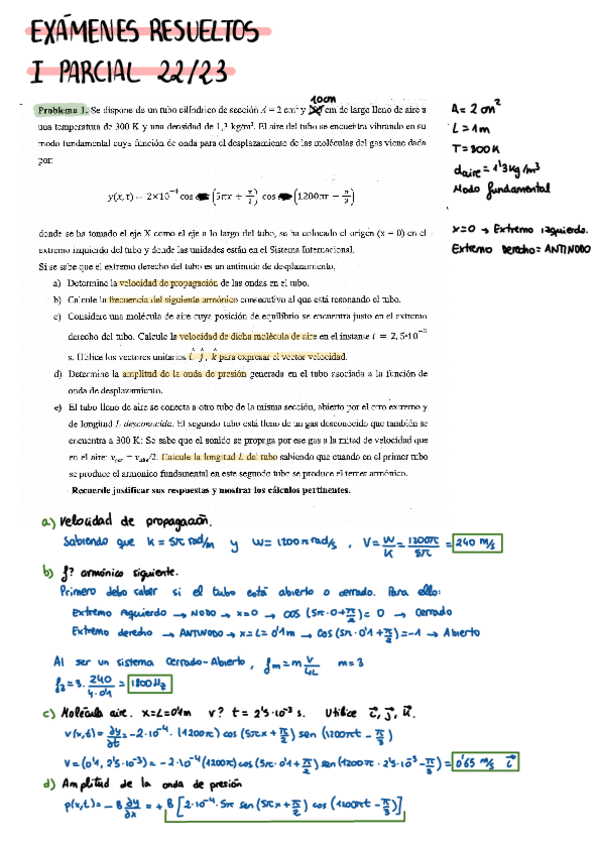 EXÁMENES RESUELTOS
I PARCIAL 22/23
10cm
Problema 1. Se dispone de un tubo cilíndrico de sección A = 2 cm² y cm de largo lleno de aire a
una temperatura de 300 K y una densidad de 1,3 kg/m³. El aire del tubo se encuentra vibrando en su
modo fundamental cuya función de onda para el desplazamiento de las moléculas del gas viene dada
por:
A = 2 cm²
L = 1m
T = 300K
d aire = 1'3 kg/m³
Modo fundamental
y(x,t) = 2×10⁻⁴ cos (5πx + π/2) cos (1200πt − π/3)
donde se ha tomado el eje X como el eje a lo largo del tubo, se ha colocado el origen (x = 0) en el
extremo izquierdo del tubo y donde las unidades están en el Sistema Internacional.
x=0 → Extremo izquierdo.
Extremo Derecho = ANTINODO
Si se sabe que el extremo derecho del tubo es un antinodo de desplazamiento,
a) Determine la velocidad de propagación de las ondas en el tubo.
b) Calcule la frecuencia del siguiente armónico consecutivo al que está resonando el tubo.
c) Considere una molécula de aire cuya posición de equilibrio se encuentra justo en el extremo
derecho del tubo. Calcule la velocidad de dicha molécula de aire en el instante t = 2,5·10⁻³
s. Utilice los vectores unitarios i, j, k para expresar el vector velocidad.
d) Determine la amplitud de la onda de presión generada en el tubo asociada a la función de
onda de desplazamiento.
e) El tubo lleno de aire se conecta a otro tubo de la misma sección, abierto por el otro extremo y
de longitud L desconocida. El segundo tubo está lleno de un gas desconocido que también se
encuentra a 300 K: Se sabe que el sonido se propaga por ese gas a la mitad de velocidad que
en el aire: = /2. Calcule la longitud L del tubo sabiendo que cuando en el primer tubo
se produce el armónico fundamental en este segundo tubo se produce el tercer armónico.
Recuerde justificar sus respuestas y mostrar los cálculos pertinentes.
a) Velocidad de propagación.
Sabiendo que K = 5π rad/m y W = 1200π rad/s , V = W/K = 1200π/5π = 240 m/s
b) f? armónico siguiente.
Primero debo saber si el tubo está abierto o cerrado. Para ello:
Extremo izquierdo → NODO → x=0 → cos (5π·0+π/2) = 0 → Cerrado
Extremo derecho → ANTINODO → x=L=0'1m → cos (5π·0'1+π/2) = -1 → Abierto
Al ser un sistema Cerrado-Abierto, fm = m V/4L m=3
f3 = 3· 240/4·0'1 = 1800 Hz
c) Molécula aire. x=L=0'1m v? t = 2'5·10⁻³ s. Utilice i, j, k.
v(x,t) = ∂y/∂t = -2·10⁻⁴·(1200π) cos (5πx+π/2) sen (1200πt - π/3)
V = (0'1, 2'5·10⁻³) = -2·10⁻⁴(1200π) cos (5π·0'1+π/2) sen (1200π·2'5·10⁻³-π/3) = 0'65 m/s i
d) Amplitud de la onda de presión
p(x,t) = -B ∂y/∂x = +B [2·10⁻⁴·5π sen (5πx+π/2) cos (1200πt-π/3)]